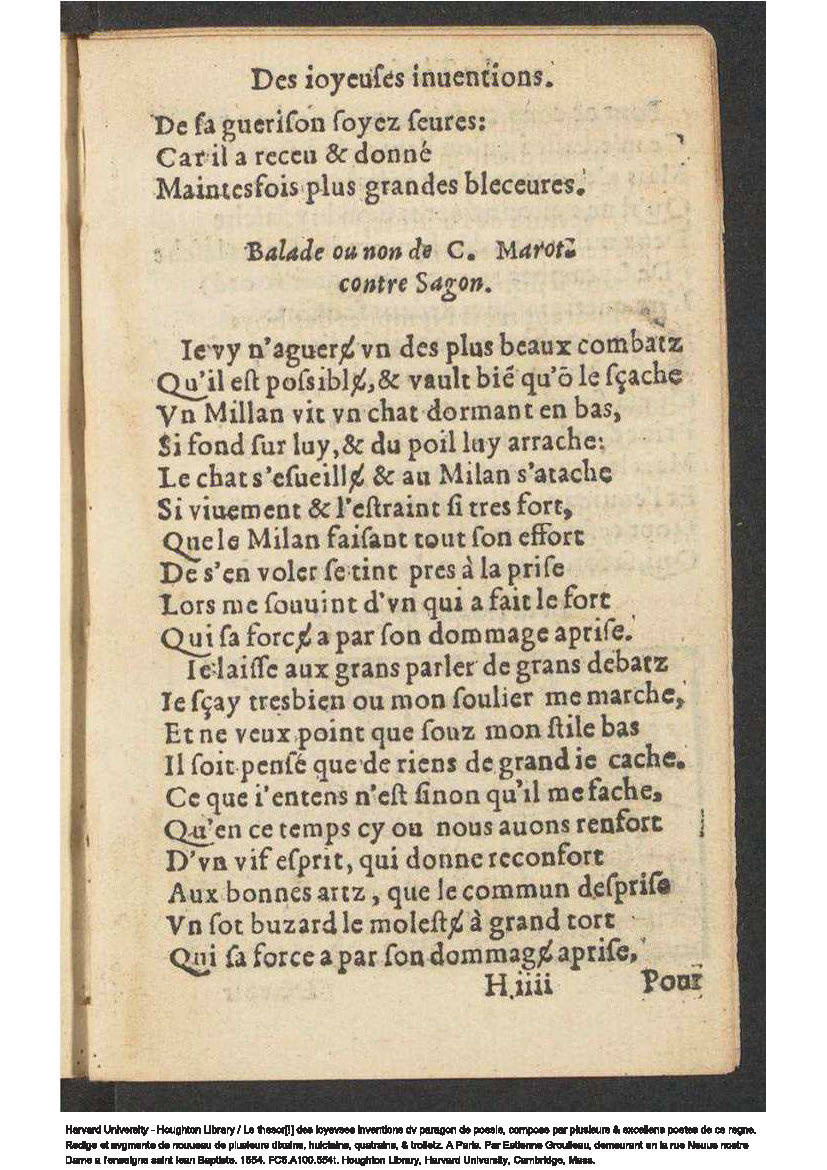 Des ioyeuſes inuentions.
De ſa gueriſon ſoyez ſeures:
Car il a receu & donné
Maintesfois plus grandes bleceures.
Balade ou non de C. Marotz
contre Sagon.
Ie vy n'aguerɇ vn des plus beaux combatz
Qu'il eſt poſsiblɇ, & vault biẽ qu'õ le ſçache
Vn Millan vit vn chat dormant en bas,
Si fond ſur luy, & du poil luy arrache:
Le chat s'eſueillɇ & au Milan s'atache
Si viuement & l'eſtraint ſi tres fort,
Que le Milan faiſant tout ſon effort
De s'en voler ſe tint pres à la priſe
Lors me ſouuint d'vn qui a fait le fort
Qui ſa forcɇ a par ſon dommage apriſe.
Ie laiſſe aux grans parler de grans debatz
Ie ſçay tresbien ou mon ſoulier me marche,
Et ne veux point que ſouz mon ſtile bas
Il ſoit penſé que de riens de grand ie cache.
Ce que i'entens n'eſt ſinon qu'il me fache,
Qu'en ce temps cy ou nous auons renfort
D'vn vif eſprit, qui donne reconfort
Aux bonnes artz, que le commun deſpriſe
Vn ſot buzard le moleſtɇ à grand tort
Qui ſa force a par ſon dommagɇ apriſe,
H.iiii Pour
Harvard University - Houghton Library / Le thesor[!] des ioyevses inventions dv paragon de poesie, compose par plusieurs & excellens poetes de ce regne.
Redige et avgmente de nouueau de plusieurs dixains, huictains, quatrains, & trolletz. A Paris. Par Estienne Groulleau, demeurant en la rue Neuue nostre
Dame a l'enseigne saint Iean Baptiste. 1554. FC5.A100.554t. Houghton Library, Harvard University, Cambridge, Mass.